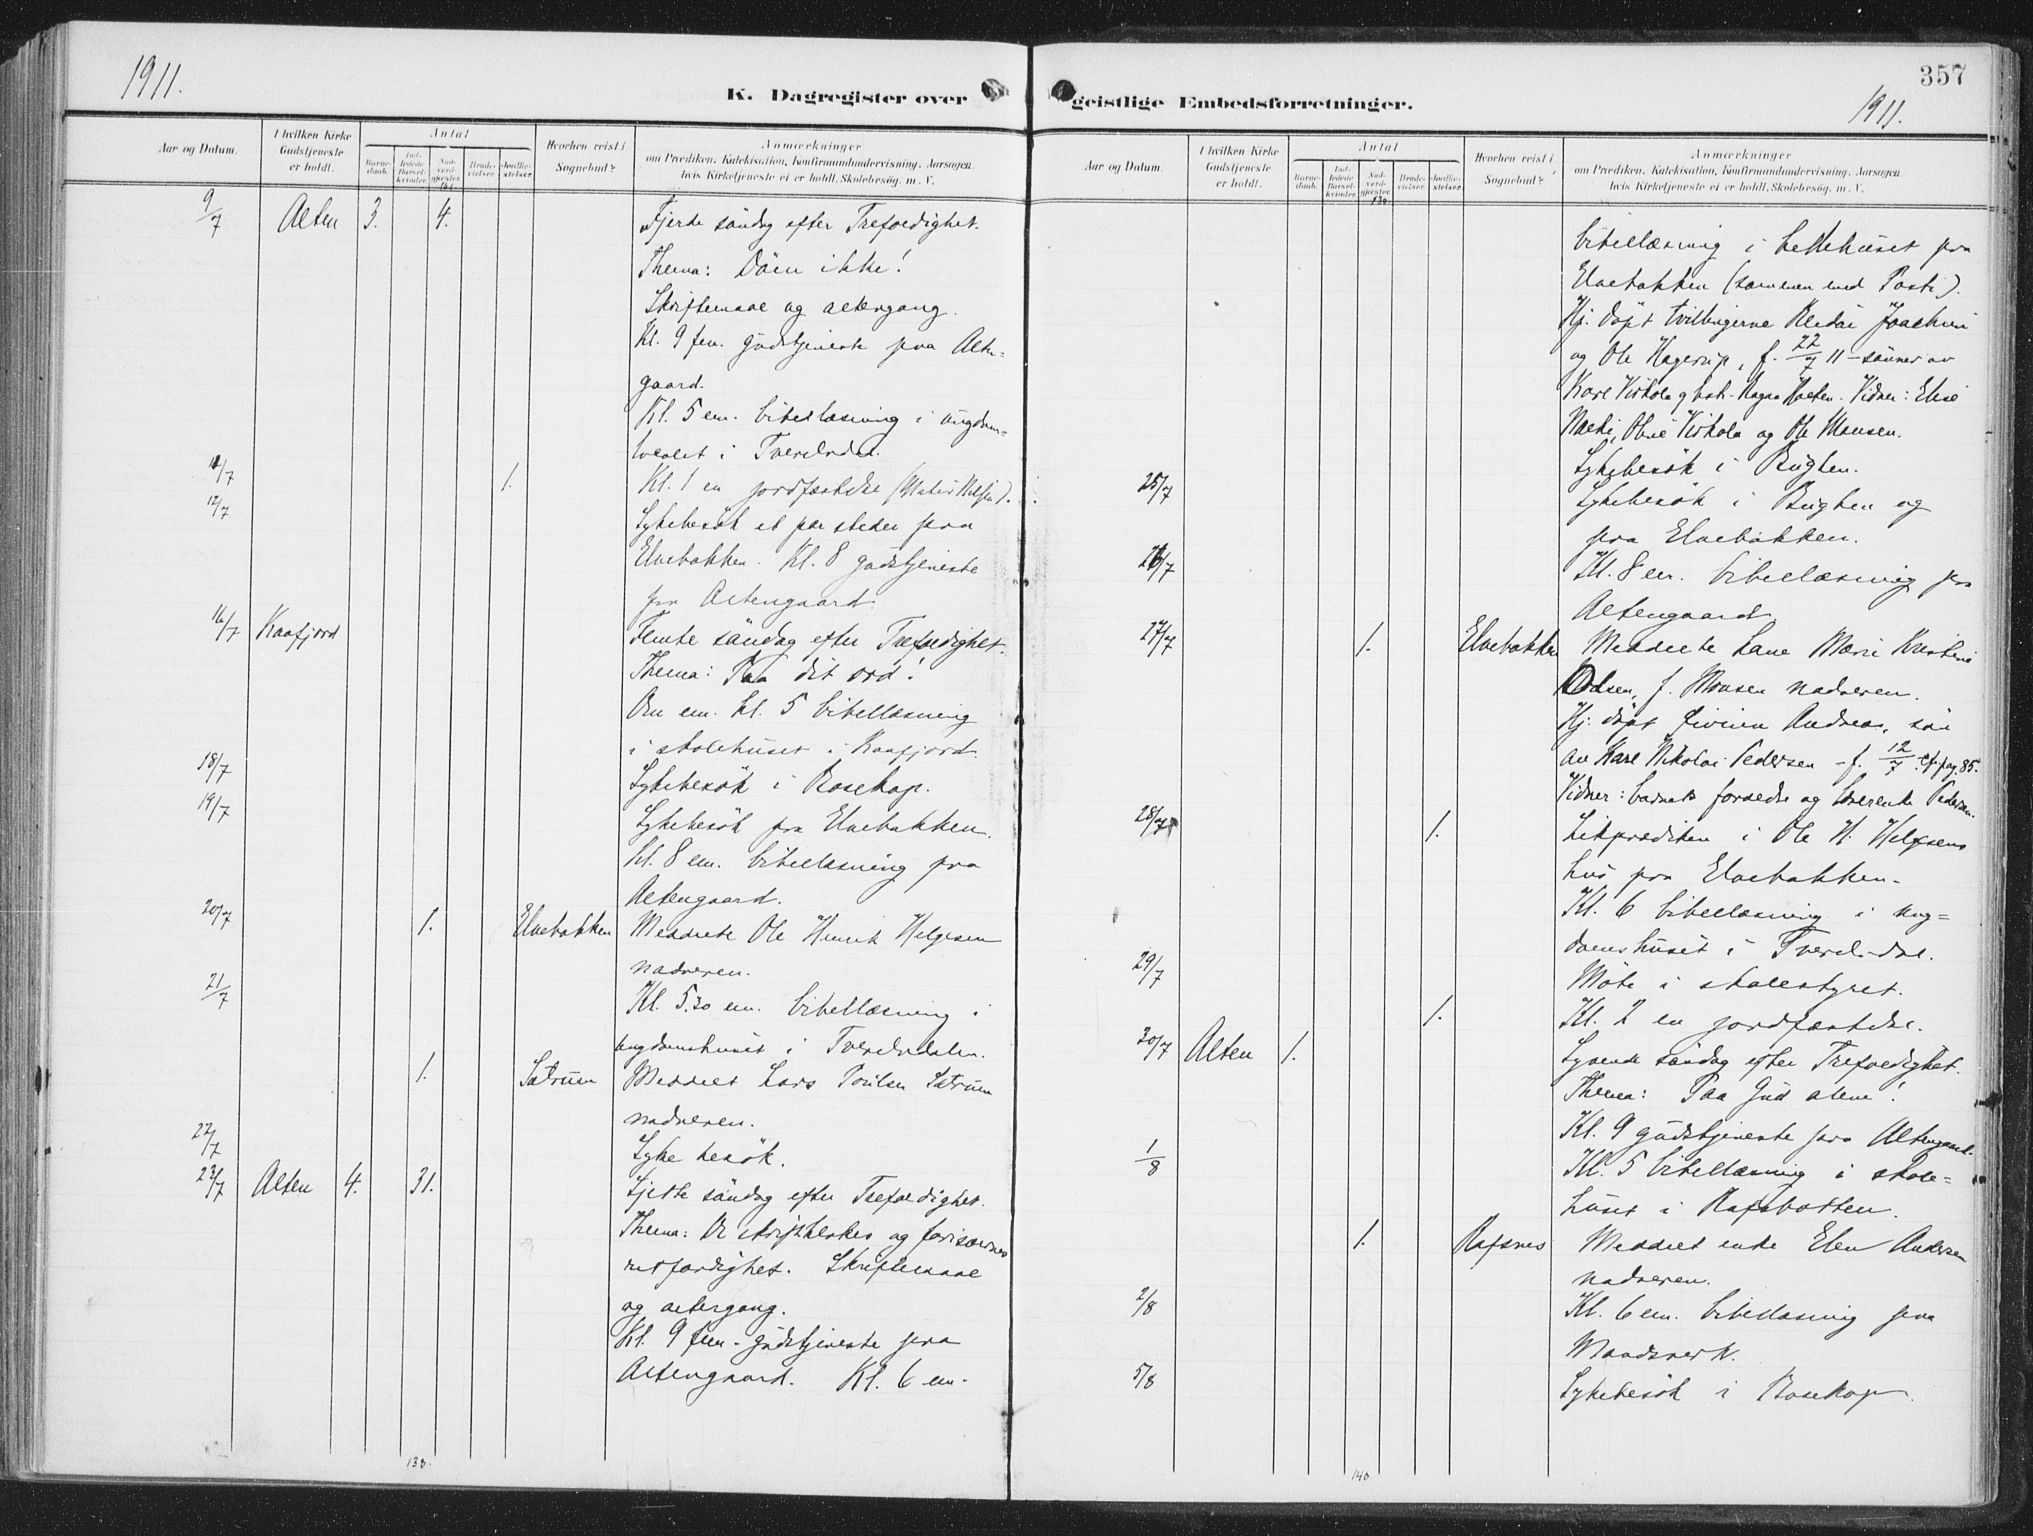 1911.
K. Dagregister over
Aar og Datum.
I hvilken Kirke Gudstjeneste er holdt.
Antal
Barnedaab.
Indledede Barselkvinder.
Nadverdgjester.
Brudevielser.
Jordfæstelser.
Hvorhen reist i Sognebud?
Anmærkninger
om Prædiken, Katekisation, Konfirmandundervisning, Aarsagen
hvis Kirketjeneste ei er holdt, Skolebesøg, m. V.
9/7 Alten 3. 4. Fjerde söndag efter Trefoldighet.
Thema: Döm ikke!
Skriftemaal og altergang.
Kl. 9 fm. gudstjeneste paa Alten-
gaard.
Kl. 5 em. bibellæsning i ungdoms-
lokalet i Tverelvdal.
11/7 1. Kl. 1 en jordfæstelse
12/7 Sykebesök et par steder paa
Elvebakken. Kl. 8 gudstjeneste
paa Altengaard.
16/7 Kaafjord Femte söndag efter Trefoldighet.
Thema: Paa dit ord!
Om em. kl. 5 bibellæsning
i skolehuset i Kaafjord.
18/7 Sykebesök i Bosekop.
19/7 Sykebesök paa Elvebakken.
Kl. 8 em. bibellæsning paa
Altengaard.
20/7 1. Elvebakken Meddelte Ole Henrik Helgesen
nadveren.
21/7 Kl. 5.30 em. bibellæsning i
ungdomshuset i Tverelvdalen.
1. Sætrum Meddelt Lars Poulsen Sætrum
nadveren.
22/7 Syke besök.
23/7 Alten 4. 31. Sjette söndag efter Trefoldighet.
Thema: De skriftklokes og farisæernes
retfærdighet. Skriftemaal
og altergang.
Kl. 9 fm. gudstjeneste paa
Altengaard. Kl. 6 em.
138.
357
1911.
geistlige Embedsforretninger.
Aar og Datum.
I hvilken Kirke Gudstjeneste er holdt.
Antal
Barnedaab.
Indledede Barselkvinder.
Nadverdgjester.
Brudevielser.
Jordfæstelser.
Hvorhen reist i Sognebud?
Anmærkninger
om Prædiken, Katekisation, Konfirmandundervisning, Aarsagen
hvis Kirketjeneste ei er holdt, Skolebesøg, m. V.
138
bibellæsning i bedehuset paa
Elvebakken (sammen med Posti).
Hj. döpt tvillingerne Joachim
og Ole Hagerup, f. 22/7 11 - sönner av
Karl Virkola og Vidner: Elise
Virkola og Ole Monsen.
Sykebesök i Bugten.
25/7 Sykebesök i Bugten og
paa Elvebakken.
26/7 Kl. 8 em. bibellæsning paa
Altengaard.
27/7 1. Elvebakken Meddelte Marie Kristine
Odsen, f. Monsen nadveren.
Hj. döpt Andreas, sön
av Karl Nikolai Pedersen - f. 12/7. Cfr. pag. 85.
Vidner: barnets forældre og Pedersen.
28/7 1. Likprædiken i Ole H. Helgesens
hus paa Elvebakken.
Kl. 6 bibellæsning i ung-
domshuset i Tverelvdal.
29/7 Möte i skolestyret.
1. Kl. 2 en jordfæstelse.
30/7 Alten 1. Syvende söndag efter Trefoldighet.
Thema: Paa Gud alene!
Kl. 9 gudstjeneste paa Altengaard.
1/8 Kl. 5 bibellæsning i skole-
huset i Rafsbotten.
1. Rafsnes Meddelt enke Elen Andersen
nadveren.
2/8 Kl. 6 em. bibellæsning paa
Mandsverk.
5/8 Sykebesök i Bosekop.
140.